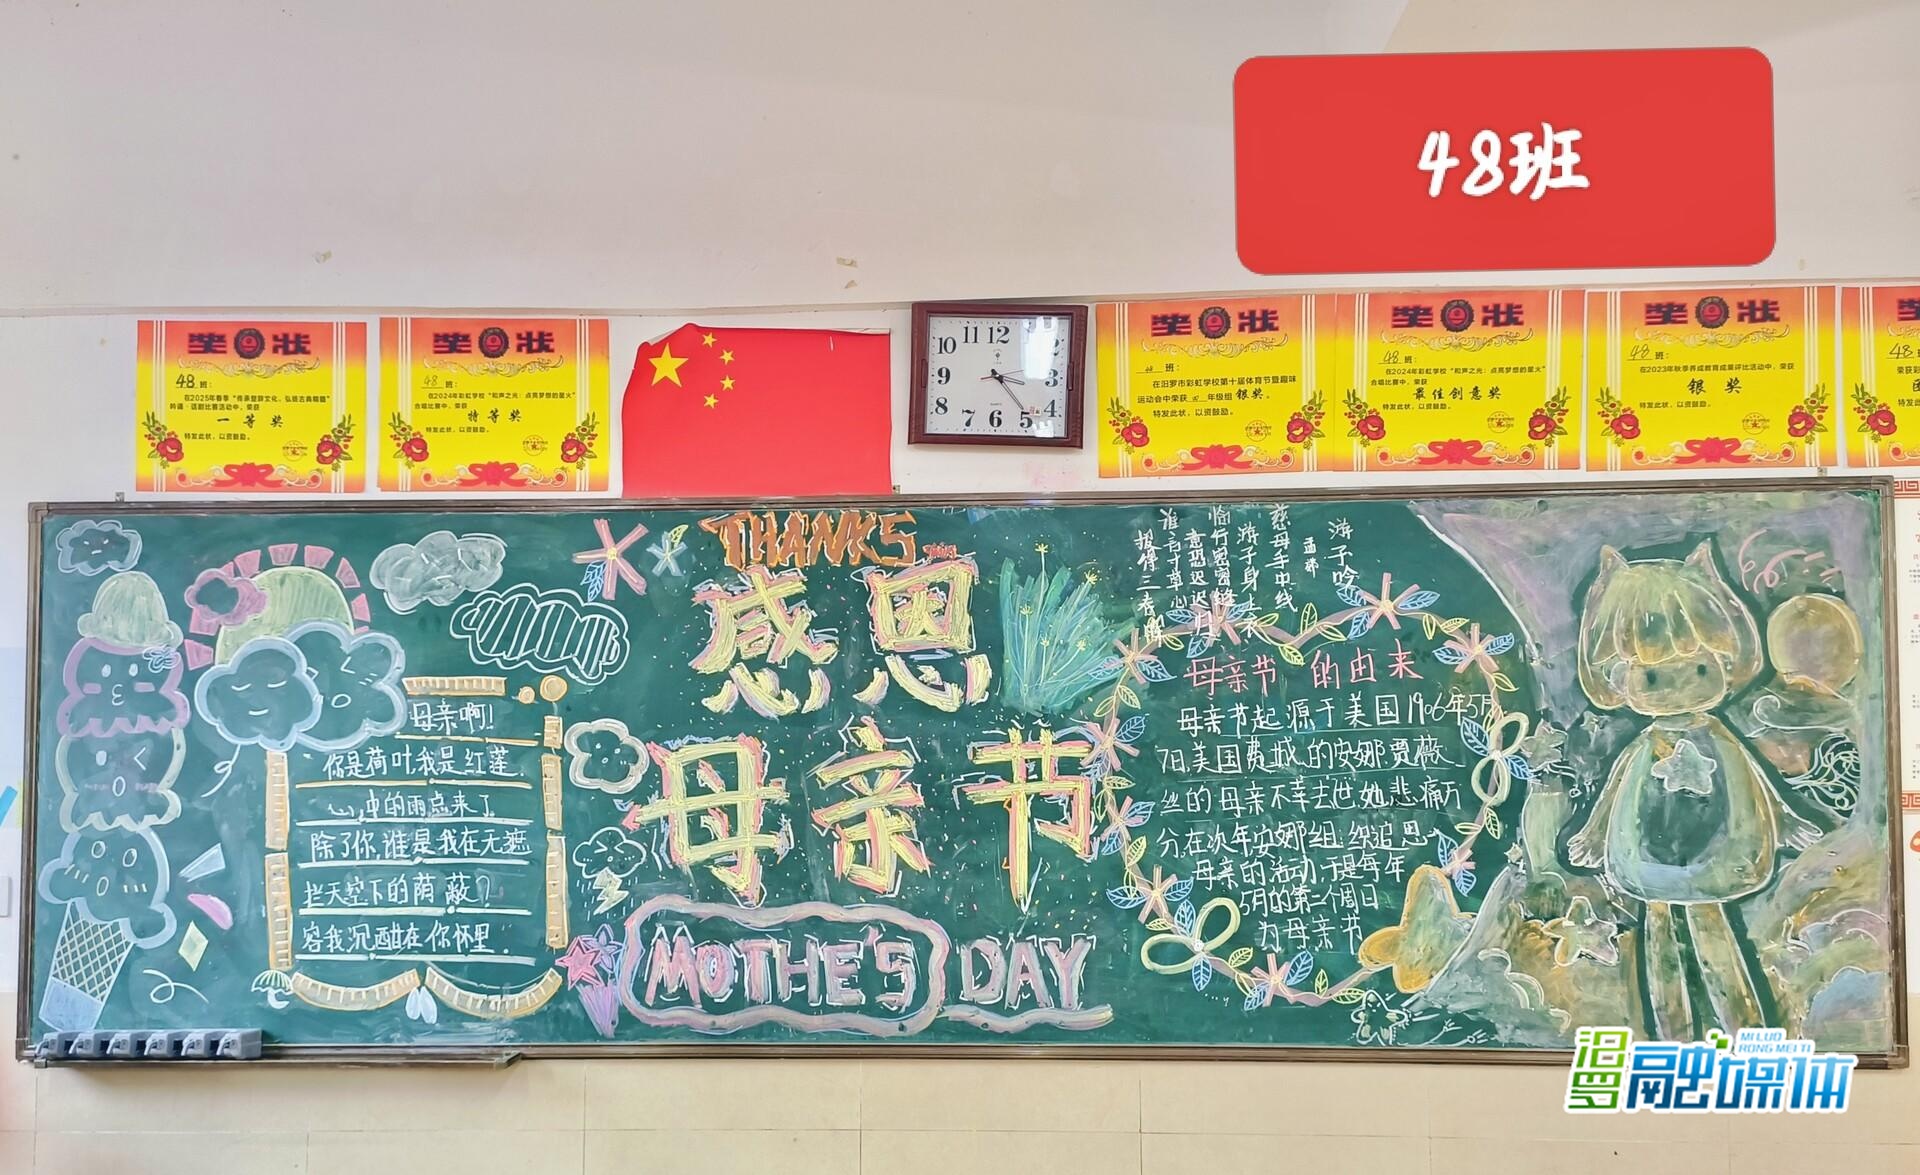 48班
奖状
48班：
在2025年春季“传承楚辞文化，弘扬古典精髓”
吟诵·话剧比赛活动中，荣获
一等奖
特发此状，以资鼓励。
奖状
48班：
在2024年彩虹学校“和声之光：点亮梦想的星火”
合唱比赛中，荣获
特等奖
特发此状，以资鼓励。
11 12 1
10
9
3
8
4
7 6 5
奖状
48班：
在汨罗市彩虹学校第十届体育节暨趣味
年级组银奖。
特发此状，以资鼓励。
奖状
48班：
在2024年彩虹学校“和声之光：点亮梦想的星火”
合唱比赛中，荣获
最佳创意奖
特发此状，以资鼓励。
奖状
48班：
在2023年秋季养成教育成果评比活动中，荣获
银奖
特发此状，以资鼓励。
48班：
母亲啊！
你是荷叶，我是红莲，
心中的雨点来了
除了你，谁是我在无遮
拦天空下的荫蔽？
容我沉酣在你怀里．
THANKS
感恩
母亲节
MOTHE'S DAY
游子吟
孟郊
慈母手中线
游子身上衣
临行密密缝
意恐迟迟归
谁言寸草心
报得三春晖
母亲节的由来
母亲节起源于美国1906年5月
7日，美国费城的安娜贾薇
丝的母亲不幸去世她悲痛万
分，在次年安娜组织追思
母亲的活动于是每年
5月的第二个周日
为母亲节
汨罗融媒体
MI LUO
RONG MEI TI